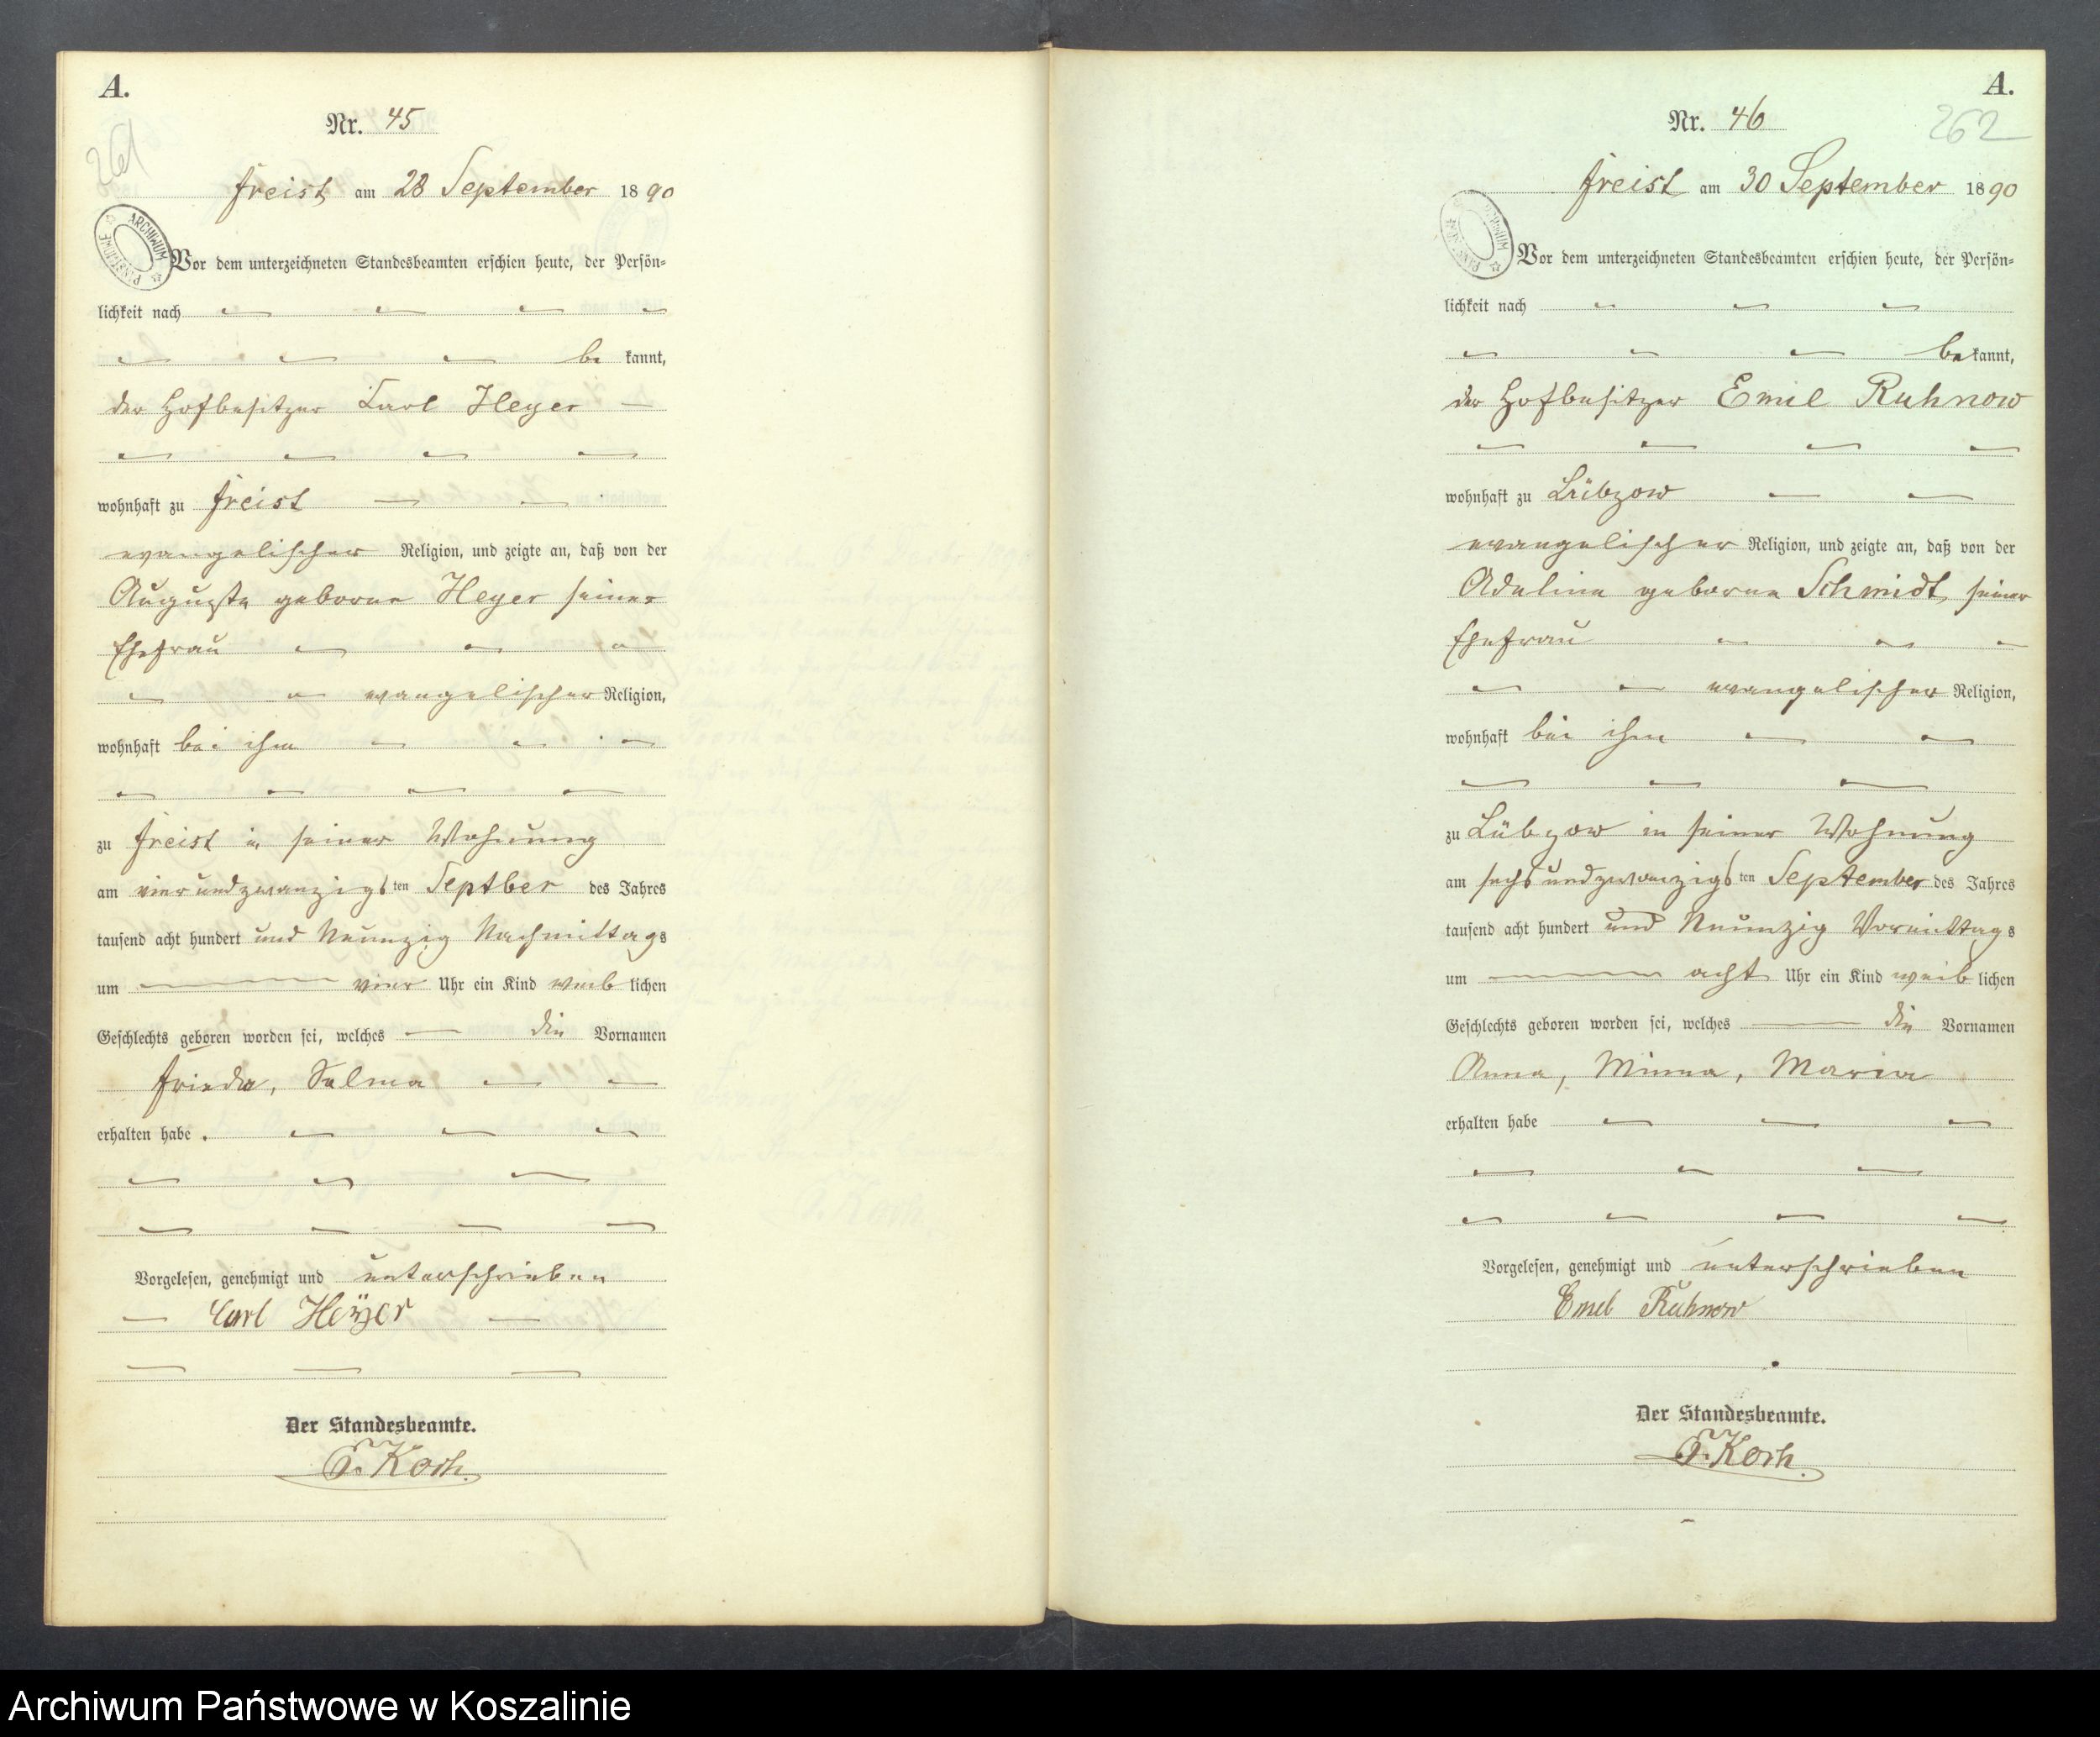 A.
Nr. 45
261
Freist am 28 September 1890
ARCHIWUM PAŃSTWOWE
Vor dem unterzeichneten Standesbeamten erschien heute, der Persön-
lichkeit nach
be kannt,
der Hofbesitzer Carl Heyer
wohnhaft zu Freist
evangelischer Religion, und zeigte an, daß von der
Auguste geborne Heyer seiner
Ehefrau
evangelischer Religion,
wohnhaft bei ihm
zu Freist in seiner Wohnung
am vier und zwanzigsten Septber des Jahres
tausend acht hundert und Neunzig Nachmittags
um vier Uhr ein Kind weiblichen
Geschlechts geboren worden sei, welches die Vornamen
Frieda, Selma
erhalten habe.
Vorgelesen, genehmigt und unterschrieben
Carl Heÿer
Der Standesbeamte.
Koch.
A.
Nr. 46
262
Freist am 30 September 1890
ARCHIWUM PAŃSTWOWE
Vor dem unterzeichneten Standesbeamten erschien heute, der Persön-
lichkeit nach
bekannt,
der Hofbesitzer Emil Ruhnow
wohnhaft zu Lübzow
evangelischer Religion, und zeigte an, daß von der
Adeline geborne Schmidt, seiner
Ehefrau
evangelischer Religion,
wohnhaft bei ihm
zu Lübzow in seiner Wohnung
am sechs und zwanzigsten September des Jahres
tausend acht hundert und Neunzig Vormittags
um acht Uhr ein Kind weiblichen
Geschlechts geboren worden sei, welches die Vornamen
Anna, Minna, Maria
erhalten habe
Vorgelesen, genehmigt und unterschrieben
Emil Ruhnow
Der Standesbeamte.
Koch.
Archiwum Państwowe w Koszalinie